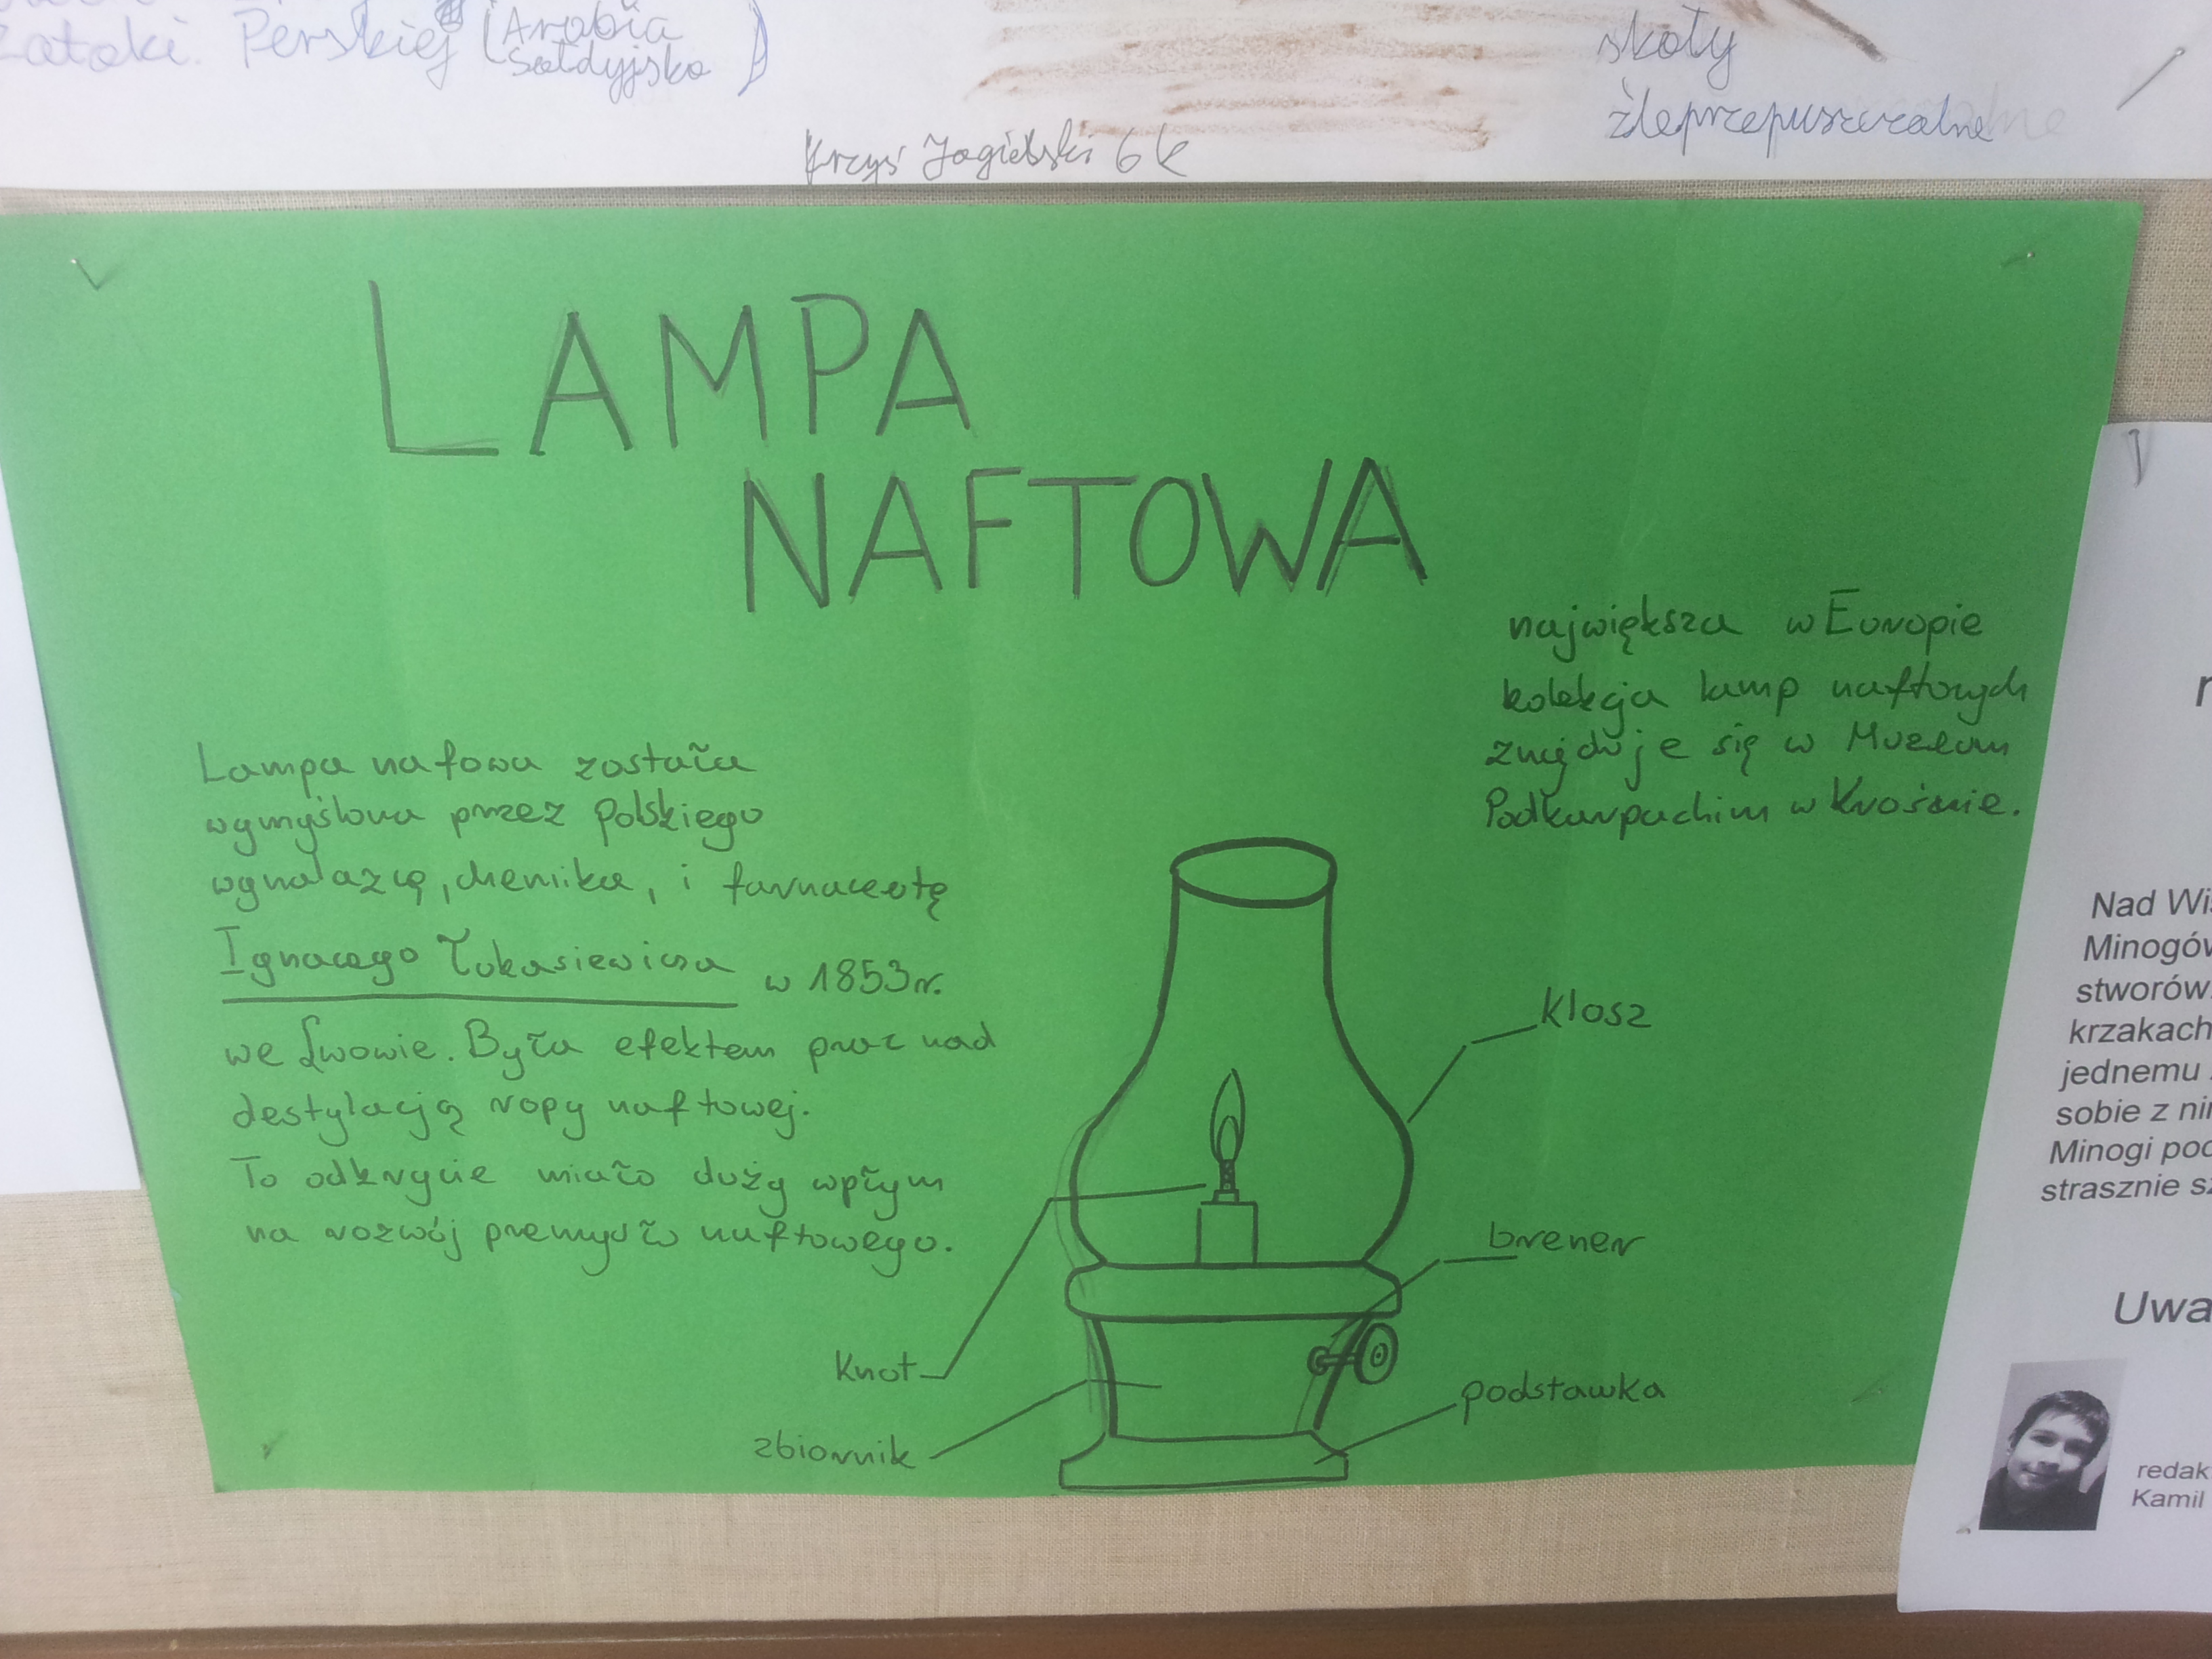 Zatoki Perskiej (Arabia
skały
źleprzepuszczalne
Krzyś Jagielski 6k
LAMPA
NAFTOWA
największa w Europie
kolekcja lamp naftowych
znajduje się w Muzeum
Podkarpachim w Krośnie.
Lampa nafowa została
wymyślona przez polskiego
wynalazcę, chemika, i farmaceutę
Ignacego Łukasiewicza w 1853r.
we Lwowie. Była efektem prac nad
destylacją ropy naftowej.
To odkrycie miało duży wpłym
na rozwój premysłu naftowego.
klosz
brener
knot
podstawka
zbiornik
Nad Wi
Minogów
stworów
krzakach
jednemu
sobie z
Minogi
strasznie
Uwa
redak
Kamil